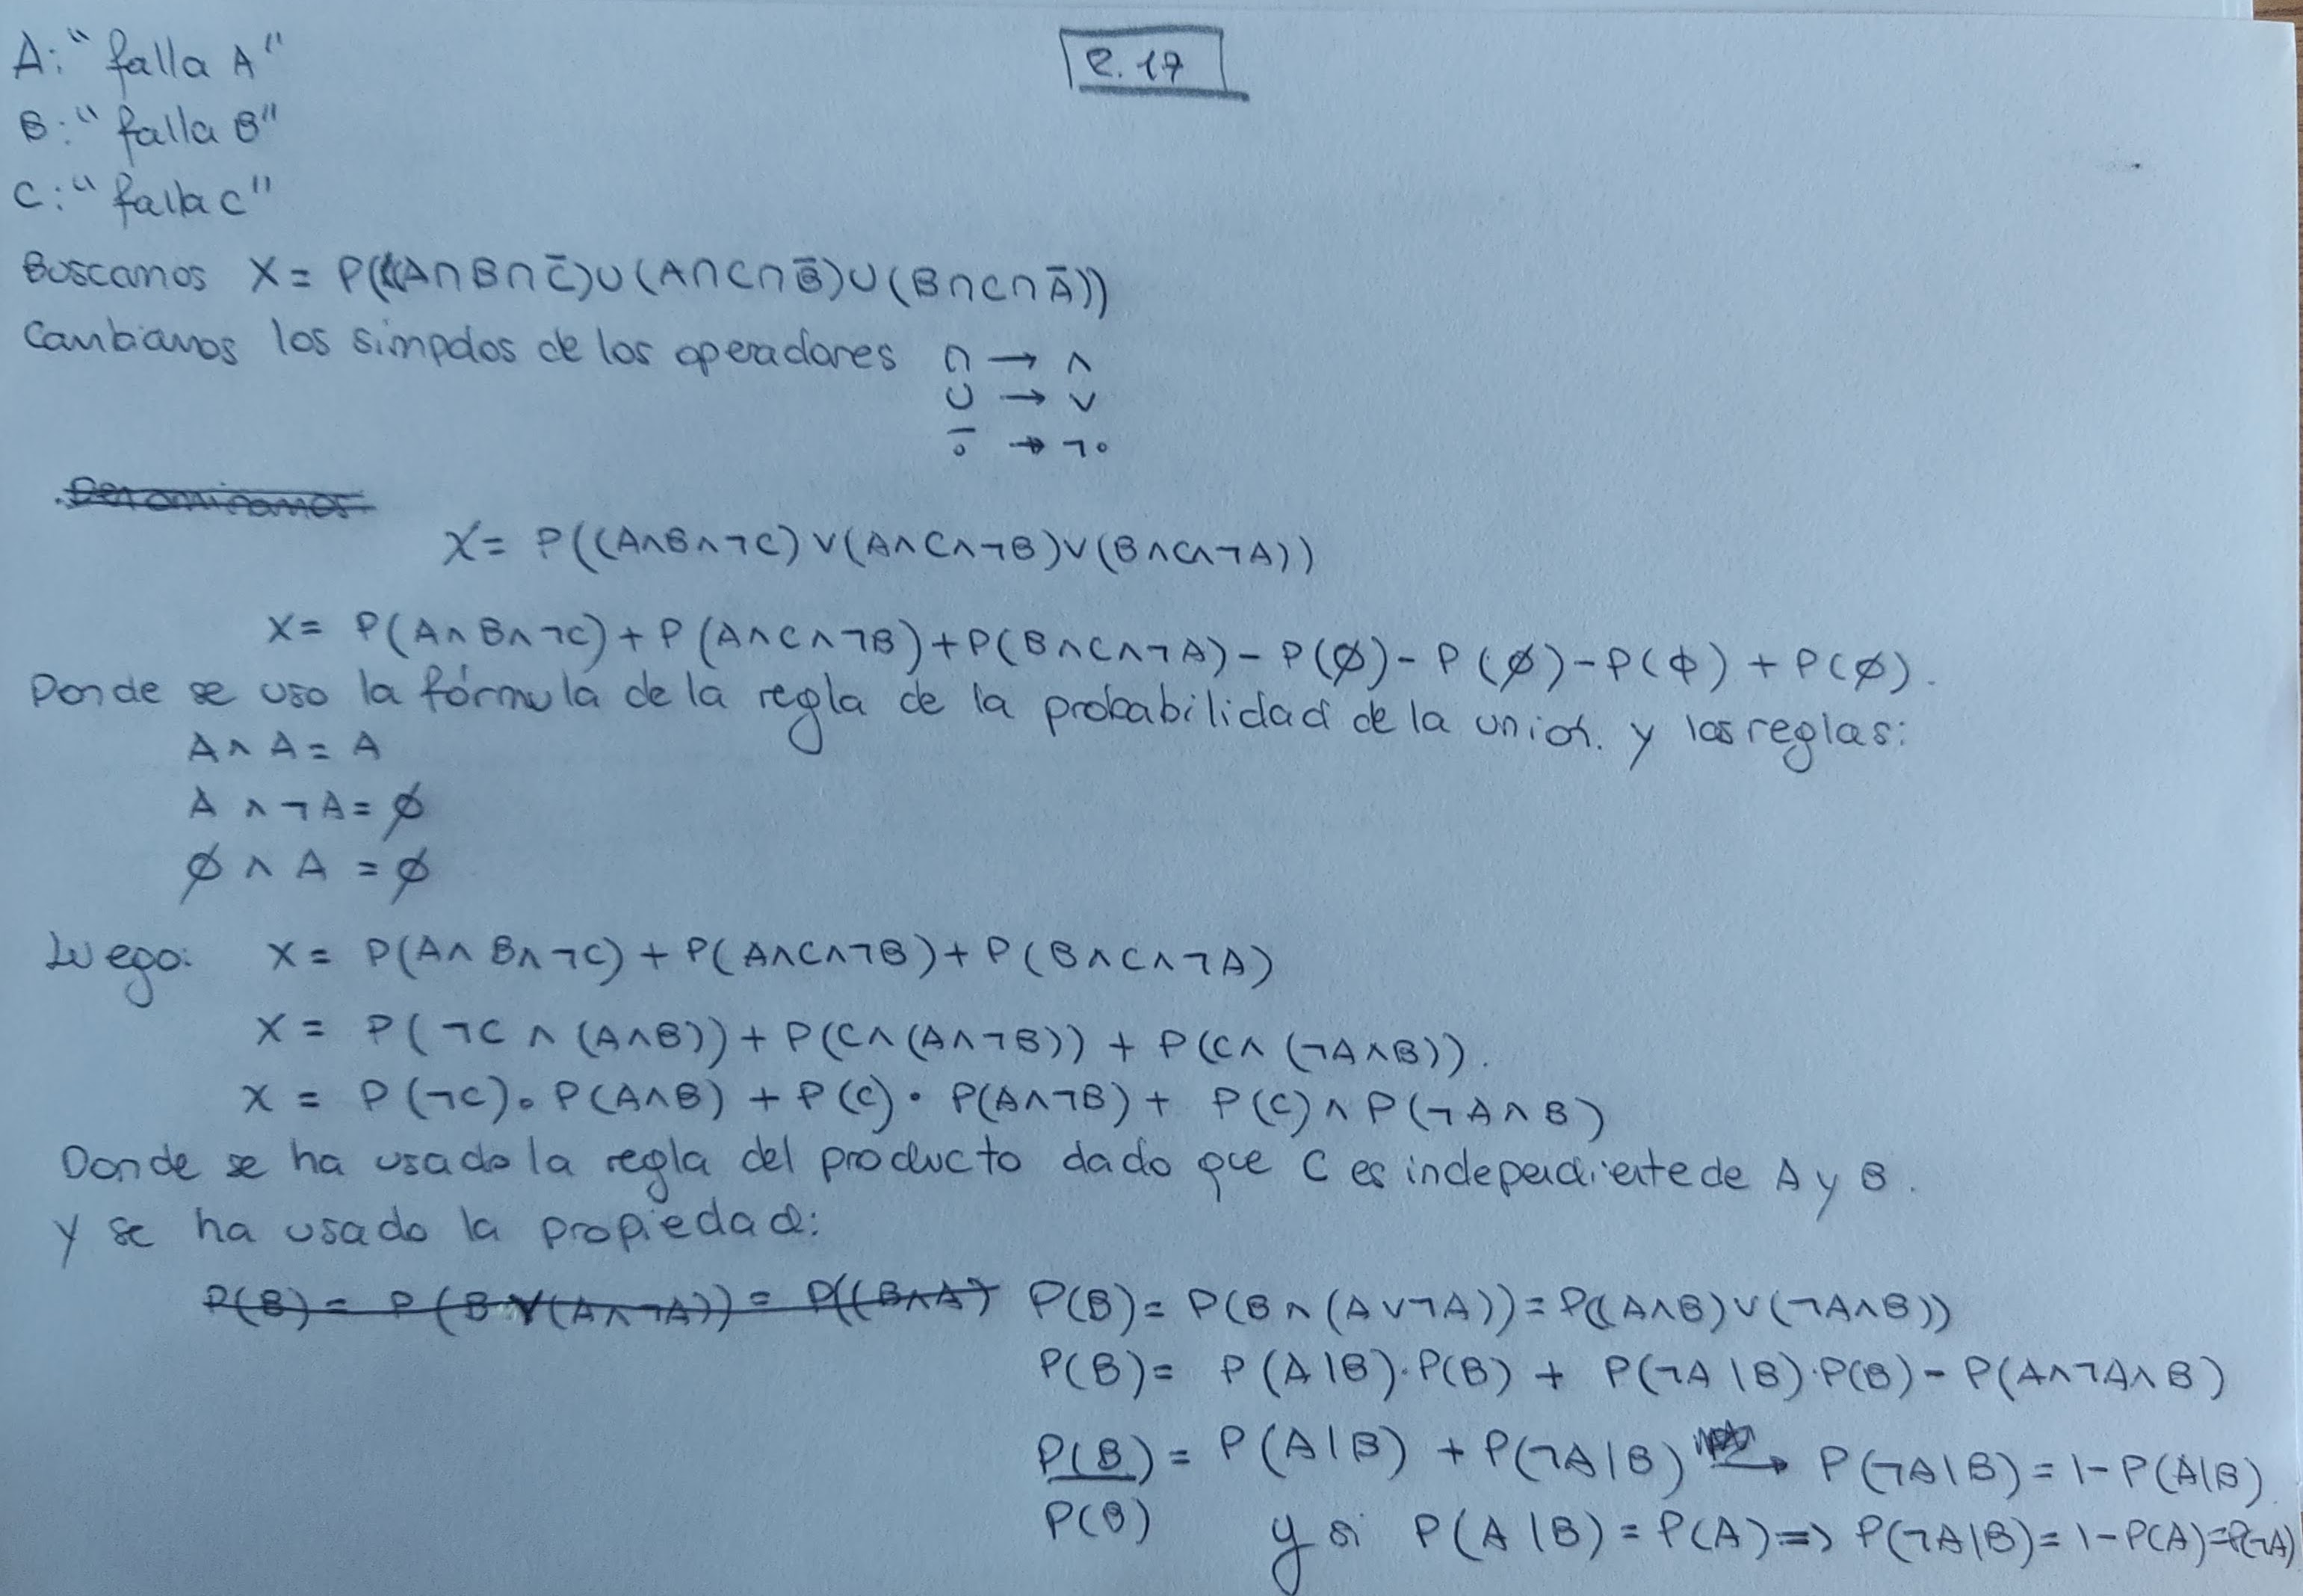 2.17
A: "falla A"
B: "falla B"
C: "falla C"
Buscamos X = P((A∩B∩C̄)∪(A∩C∩B̄)∪(B∩C∩Ā))
Cambiamos los simpolos de los operadores ∩ → ∧
∪ → ∨
¯∘ → ¬∘
Denominamos
X = P((A∧B∧¬C)∨(A∧C∧¬B)∨(B∧C∧¬A))
X = P(A∧B∧¬C) + P(A∧C∧¬B) + P(B∧C∧¬A) - P(∅) - P(∅) - P(∅) + P(∅).
Donde se uso la fórmula de la regla de la probabilidad de la union. y las reglas:
A∧A = A
A∧¬A = ∅
∅∧A = ∅
Luego: X = P(A∧B∧¬C) + P(A∧C∧¬B) + P(B∧C∧¬A)
X = P(¬C∧(A∧B)) + P(C∧(A∧¬B)) + P(C∧(¬A∧B)).
X = P(¬C)·P(A∧B) + P(C)·P(A∧¬B) + P(C)∧P(¬A∧B)
Donde se ha usado la regla del producto dado que C es independiente de A y B.
Y se ha usado la propiedad:
P(B) = P(B∨(A∧¬A)) = P((B∧A) P(B) = P(B∧(A∨¬A)) = P((A∧B)∨(¬A∧B))
P(B) = P(A|B)·P(B) + P(¬A|B)·P(B) - P(A∧¬A∧B)
P(B)/P(B) = P(A|B) + P(¬A|B) → P(¬A|B) = 1-P(A|B)
y si P(A|B) = P(A) ⇒ P(¬A|B) = 1-P(A) = P(¬A)